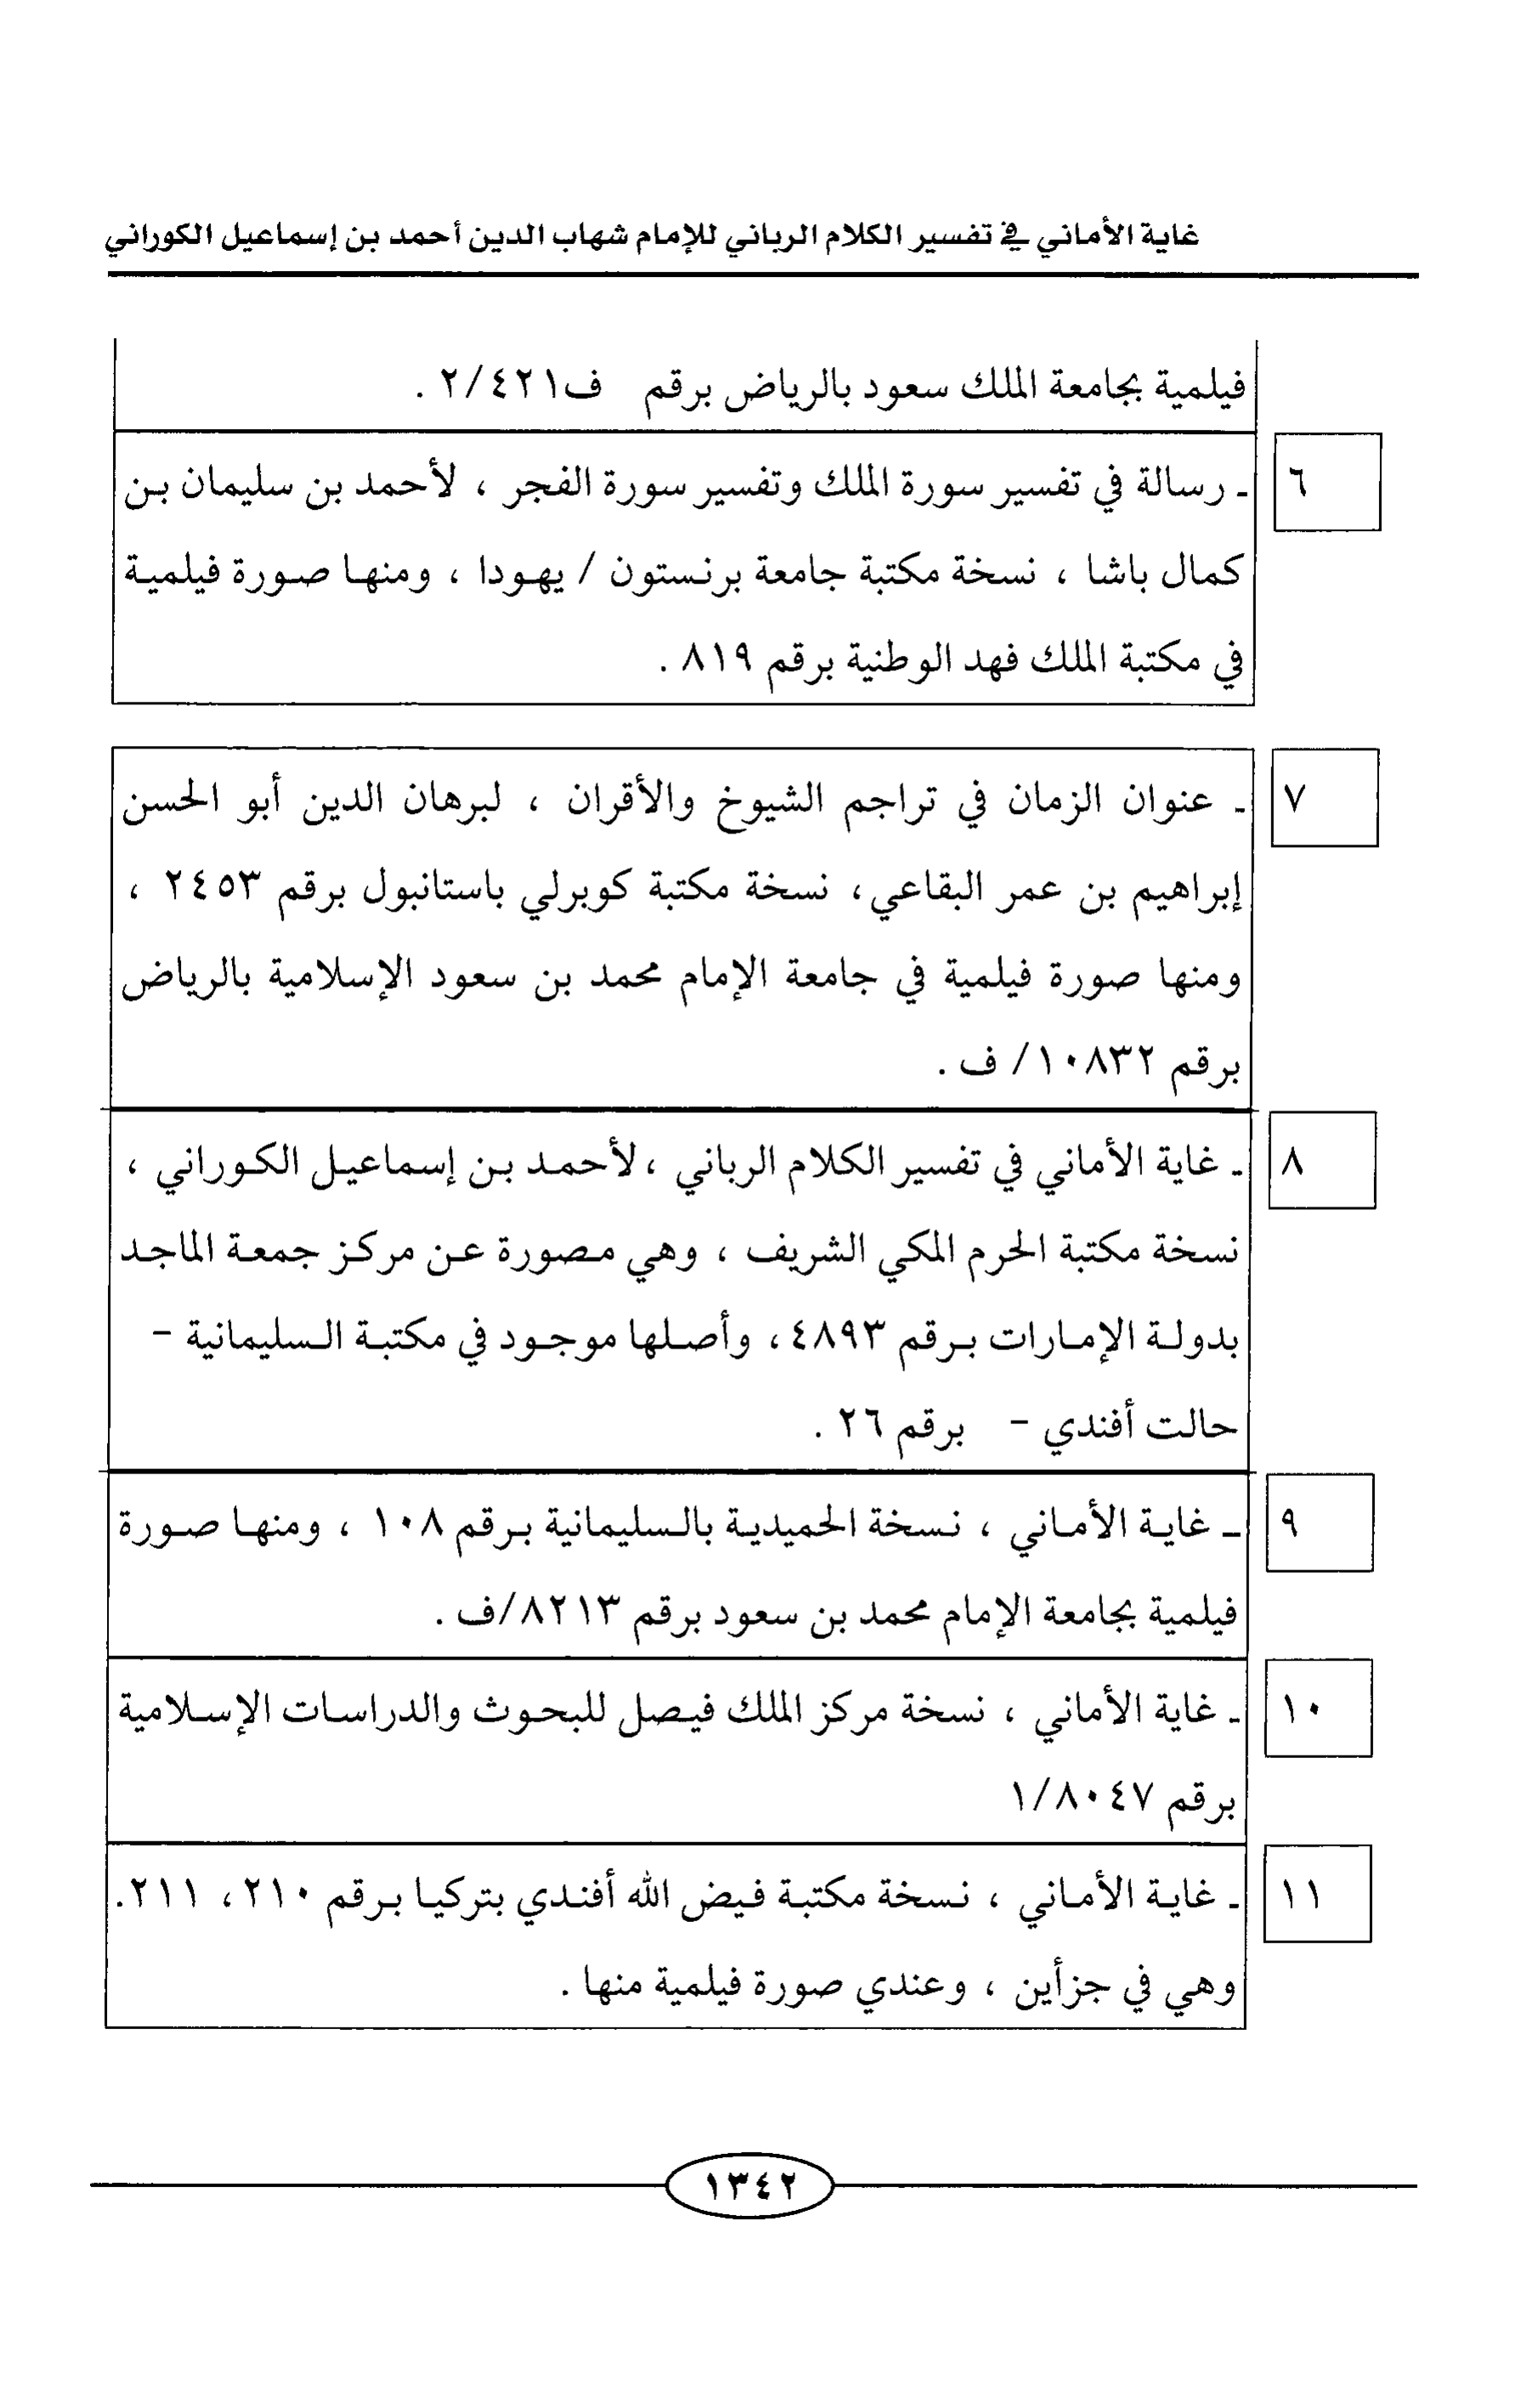 غاية الأماني في تفسير الكلام الرباني للإمام شهاب الدين أحمد بن إسماعيل الكوراني
فيلمية بجامعة الملك سعود بالرياض برقم ف٢/٤٢١ .
٦
ـ رسالة في تفسير سورة الملك وتفسير سورة الفجر ، لأحمد بن سليمان بن
كمال باشا ، نسخة مكتبة جامعة برنستون / يهودا ، ومنها صورة فيلمية
في مكتبة الملك فهد الوطنية برقم ٨١٩ .
٧
ـ عنوان الزمان في تراجم الشيوخ والأقران ، لبرهان الدين أبو الحسن
إبراهيم بن عمر البقاعي، نسخة مكتبة كوبرلي باستانبول برقم ٢٤٥٣ ،
ومنها صورة فيلمية في جامعة الإمام محمد بن سعود الإسلامية بالرياض
برقم ١٠٨٣٢/ ف .
٨
ـ غاية الأماني في تفسير الكلام الرباني ،لأحمد بن إسماعيل الكوراني ،
نسخة مكتبة الحرم المكي الشريف ، وهي مصورة عن مركز جمعة الماجد
بدولة الإمارات برقم ٤٨٩٣، وأصلها موجود في مكتبة السليمانية -
حالت أفندي - برقم ٢٦ .
٩
ـ غاية الأماني ، نسخة الحميدية بالسليمانية برقم ١٠٨ ، ومنها صورة
فيلمية بجامعة الإمام محمد بن سعود برقم ٨٢١٣/ف .
١٠
ـ غاية الأماني ، نسخة مركز الملك فيصل للبحوث والدراسات الإسلامية
برقم ١/٨٠٤٧
١١
ـ غاية الأماني ، نسخة مكتبة فيض الله أفندي بتركيا برقم ٢١٠، ٢١١.
وهي في جزأين ، وعندي صورة فيلمية منها .
١٣٤٢